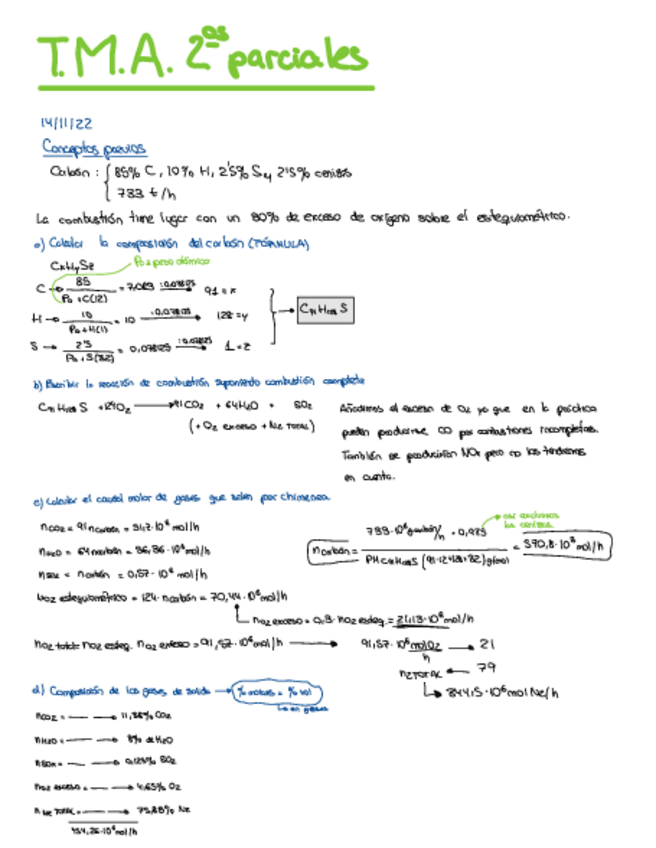 T.M.A. 2ºˢ parciales
14/11/22
Conceptos previos
Carbón : { 85% C, 10% H, 2'5% S y 2'5% cenizas
733 t/h
La combustión tiene lugar con un 30% de exceso de oxígeno sobre el estequiométrico.
a) Calcular la composición del carbón (FÓRMULA)
CxHySz
Pa = peso atómico
C → 85 / Pa C(12) = 7,083 :0,078125 → 91 = x
H → 10 / Pa H(1) = 10 :0,078125 → 128 = y → C91 H128 S
S → 2'5 / Pa S(32) = 0,078125 :0,078125 → 1 = z
b) Escribir la reacción de combustión suponiendo combustión completa
C91 H128 S + 124 O2 → 91 CO2 + 64 H2O + SO2
(+ O2 exceso + N2 TOTAL)
Añadimos el exceso de O2 ya que en la práctica
pueden producirse CO por combustiones incompletas.
También se producirían NOx pero no los tendremos
en cuenta.
c) Calcular el caudal molar de gases que salen por chimenea
nCO2 = 91 ncarbón = 51,9·10⁶ mol/h
nH2O = 64 ncarbón = 36,36·10⁶ mol/h
nSO2 = ncarbón = 0,57·10⁶ mol/h
ncarbón = 733·10⁶ g carbón/h · 0,975 / PM C91H128S (91·12+128+32) g/mol = 570,8·10³ mol/h
nO2 estequiométrico = 124·ncarbón = 70,44·10⁶ mol/h
nO2 exceso = 0,3·nO2 esteq. = 21,13·10⁶ mol/h
nO2 total = nO2 esteq. nO2 exceso = 91,57·10⁶ mol/h → 91,57·10⁶ mol O2/h → 21
n N2 TOTAL ← 79
↳ 344,5·10⁶ mol N2/h
d) Composición de los gases de salida → % molares = % vol
↳ en gases
nCO2 = — → 11,38% CO2
nH2O = — → 8% de H2O
nSO2 = — → 0,125% SO2
nO2 exceso = — → 4,65% O2
n N2 TOTAL = — → 75,88% N2
454,26·10⁶ mol/h